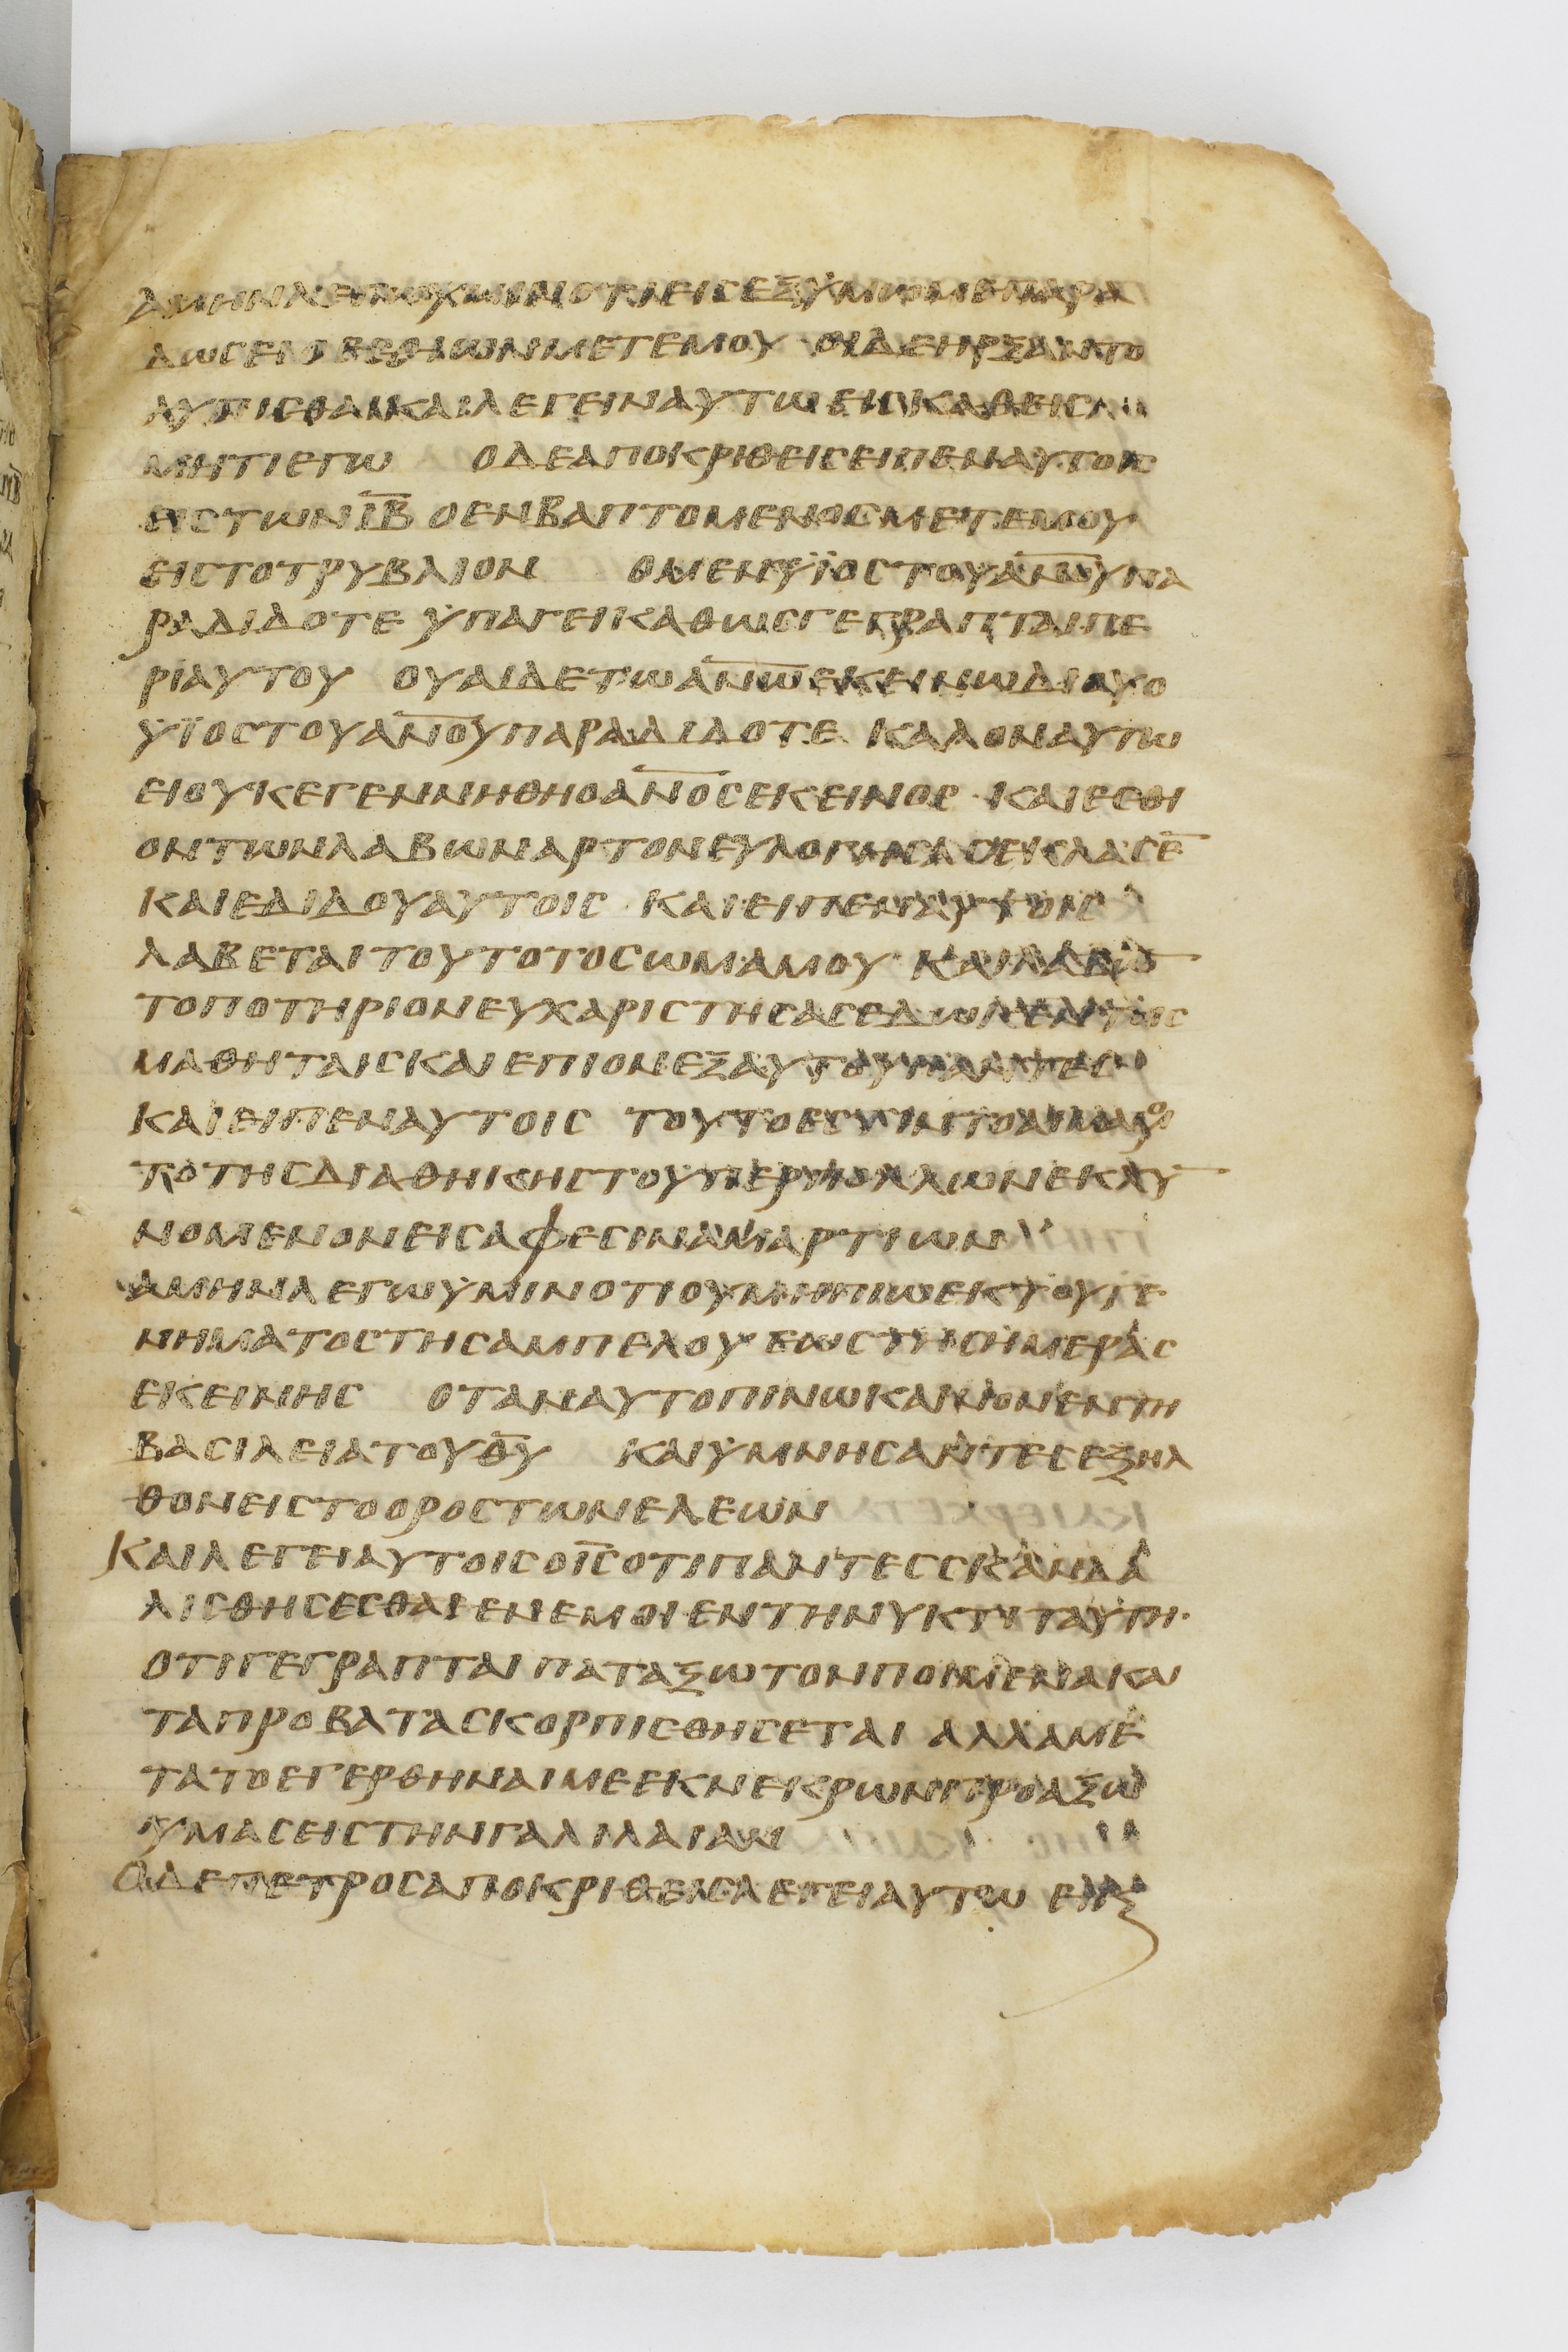 ΑΜΗΝΛΕΓΩΥΜΙΝΟΤΙΕΙΣΕΞΥΜΩΝΜΕΠΑΡΑ
ΔΩΣΕΙΟΕΣΘΙΩΝΜΕΤΕΜΟΥ ΟΙΔΕΗΡΞΑΝΤΟ
ΛΥΠΙΣΘΑΙΚΑΙΛΕΓΕΙΝΑΥΤΩΕΙΣΚΑΘΕΙΣ
ΜΗΤΙΕΓΩ ΟΔΕΑΠΟΚΡΙΘΕΙΣΕΙΠΕΝΑΥΤΟΙΣ
ΕΙΣΤΩΝΙΒ̅ ΟΕΝΒΑΠΤΟΜΕΝΟΣΜΕΤΕΜΟΥ
ΕΙΣΤΟΤΡΥΒΛΙΟΝ ΟΜΕΝΫΙΟΣΤΟΥΑΝ̅Ο̅Υ̅ΠΑ
ΡΑΔΙΔΟΤΕ ΫΠΑΓΕΙΚΑΘΩΣΓΕΓΡΑΠΤΑΙΠΕ
ΡΙΑΥΤΟΥ ΟΥΑΙΔΕΤΩΑΝ̅Ω̅ΕΚΕΙΝΩΔΙΟΥΟ
ΫΙΟΣΤΟΥΑΝ̅Ο̅Υ̅ΠΑΡΑΔΙΔΟΤΕ ΚΑΛΟΝΑΥΤΩ
ΕΙΟΥΚΕΓΕΝΝΗΘΗΟΑΝ̅Ο̅Σ̅ΕΚΕΙΝΟΣ ΚΑΙΕΣΘΙ
ΟΝΤΩΝΛΑΒΩΝΑΡΤΟΝΕΥΛΟΓΗΣΑΣΕΚΛΑΣΕ̅
ΚΑΙΕΔΙΔΟΥΑΥΤΟΙΣ ΚΑΙΕΙΠΕΝΑΥΤΟΙΣ
ΛΑΒΕΤΑΙΤΟΥΤΟΤΟΣΩΜΑΜΟΥ ΚΑΙΛΑΒΩ̅
ΤΟΠΟΤΗΡΙΟΝΕΥΧΑΡΙΣΤΗΣΑΣΕΔΩΚΕΝΤΟΙΣ
ΜΑΘΗΤΑΙΣΚΑΙΕΠΙΟΝΕΞΑΥΤΟΥΠΑΝΤΕΣ
ΚΑΙΕΙΠΕΝΑΥΤΟΙΣ ΤΟΥΤΟΕΣΤΙΝΤΟΑΙΜΑΜΟΥ
ΤΟΤΗΣΔΙΑΘΗΚΗΣΤΟΥΠΕΡΠΟΛΛΩΝΕΚΧΥ̅
ΝΟΜΕΝΟΝΕΙΣΑΦΕΣΙΝΑΜΑΡΤΙΩΝ
ΑΜΗΝΛΕΓΩΥΜΙΝΟΤΙΟΥΜΗΠΙΩΕΚΤΟΥΓΕ
ΝΗΜΑΤΟΣΤΗΣΑΜΠΕΛΟΥ ΕΩΣΤΗΣΗΜΕΡΑΣ
ΕΚΕΙΝΗΣ ΟΤΑΝΑΥΤΟΠΙΝΩΚΑΙΝΟΝΕΝΤΗ
ΒΑΣΙΛΕΙΑΤΟΥΘ̅Υ̅ ΚΑΙΥΜΝΗΣΑΝΤΕΣΕΞΗΛ
ΘΟΝΕΙΣΤΟΟΡΟΣΤΩΝΕΛΕΩΝ
ΚΑΙΛΕΓΕΙΑΥΤΟΙΣΟΙ̅Σ̅ΟΤΙΠΑΝΤΕΣΣΚΑΝΔΑ
ΛΙΣΘΗΣΕΣΘΑΙΕΝΕΜΟΙΕΝΤΗΝΥΚΤΙΤΑΥΤΗ
ΟΤΙΓΕΓΡΑΠΤΑΙΠΑΤΑΞΩΤΟΝΠΟΙΜΕΝΑΚΑΙ
ΤΑΠΡΟΒΑΤΑΣΚΟΡΠΙΣΘΗΣΕΤΑΙ ΑΛΛΑΜΕ
ΤΑΤΟΕΓΕΡΘΗΝΑΙΜΕΕΚΝΕΚΡΩΝΠΡΟΑΞΩ
ΥΜΑΣΕΙΣΤΗΝΓΑΛΙΛΑΙΑΝ
ΟΔΕΠΕΤΡΟΣΑΠΟΚΡΙΘΕΙΣΛΕΓΕΙΑΥΤΩ ΕΙΚΑΙ